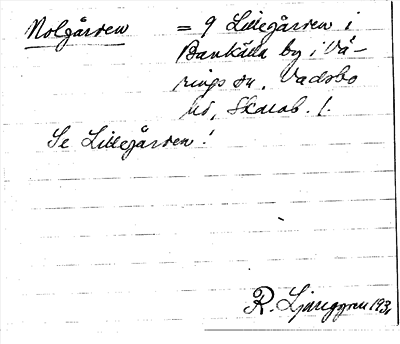 Nolgården = 9 Lillegården i
Bankälla by i Vä-
rings sn, Vadsbo
hd, Skarab. l.
Se Lillegården!
R. Ljunggren 193